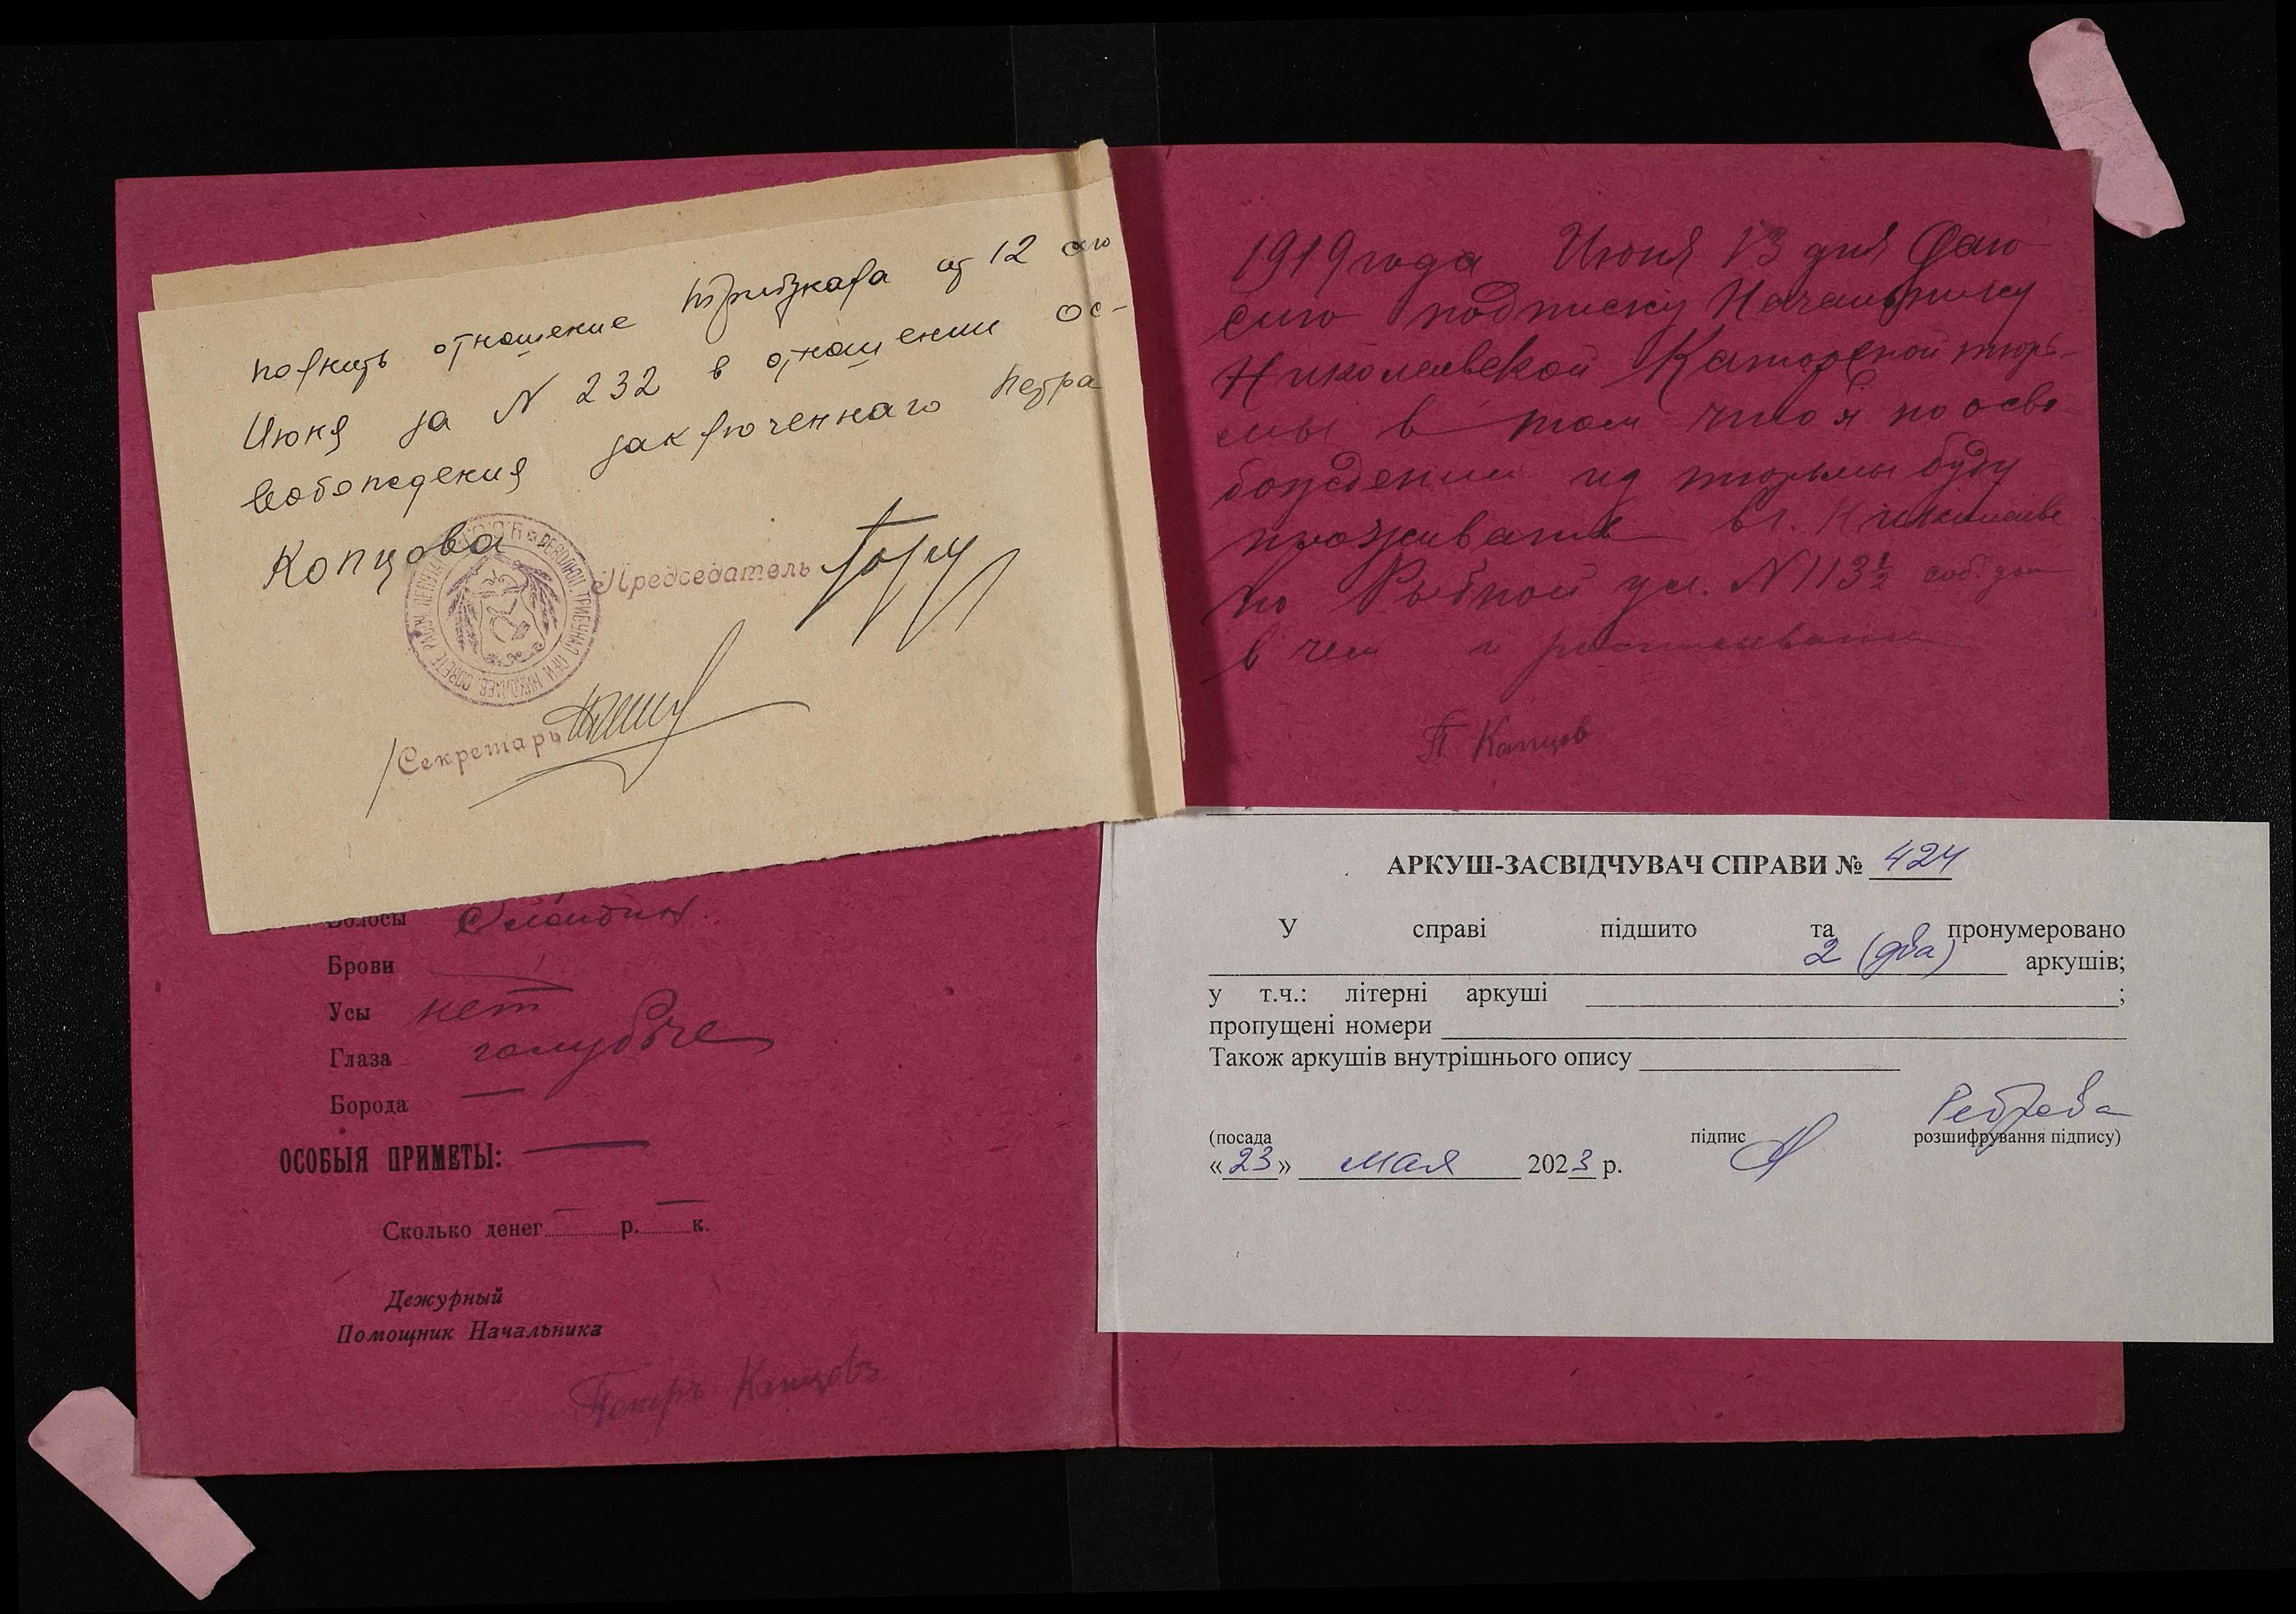 полнить отношение Трибунала от 12 сего
Июня за N 232 в отношении ос-
вобождения заключеннаго Петра
Копцова
Председатель
РЕВОЛЮЦ. ТРИБУНАЛ ПРИ НИКОЛАЕВ. СОВЕТЕ РАБОЧ. ДЕПУТАТ.
Секретарь
Волосы
Брови
Усы нет
Глаза голубые
Борода —
ОСОБЫЯ ПРИМЕТЫ: —
Сколько денег — р. — к.
Дежурный
Помощник Начальника
Петръ Капцовъ
1919 года Июня 13 дня Даю
сию подписку Начальнику
Николаевской Каторжной тюрь-
мы в том что я по осво-
бождении из тюрьмы буду
проживать в г. Николаеве
по Рыбной ул. N 113½ соб. дом
в чем и расписываюсь
П Капцов
АРКУШ-ЗАСВІДЧУВАЧ СПРАВИ № 424
У справі підшито та пронумеровано
2 (два) аркушів;
у т.ч.: літерні аркуші ;
пропущені номери
Також аркушів внутрішнього опису
Реброва
(посада підпис розшифрування підпису)
«23» мая 2023 р.